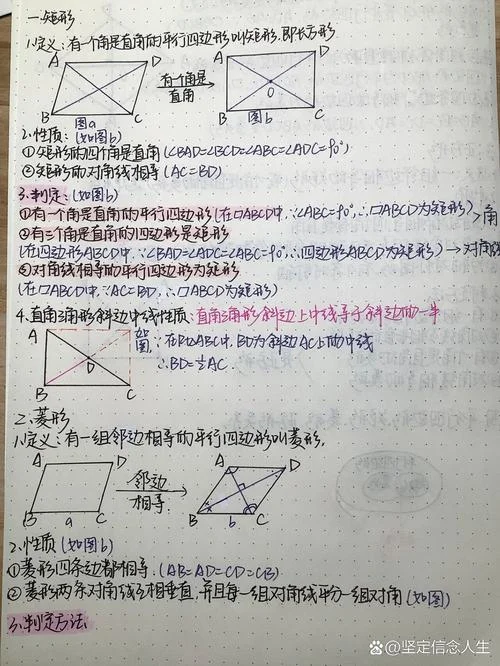 一.矩形
1.定义:有一个角是直角的平行四边形叫矩形.即长方形
A D A D
有个角是
直角
O
B C B C
图a 图b
2.性质:(如图b)
①矩形的四个角是直角(∠BAD=∠BCD=∠ABC=∠ADC=90°)
②矩形的对角线相等(AC=BD)
3.判定:(如图b)
①有一个角是直角的平行四边形(在□ABCD中,∵∠ABC=90°,∴□ABCD为矩形)>角
②有三个角是直角的四边形是矩形
(在四边形ABCD中,∵∠BAD=∠ABC=∠ADC=90°,∴四边形ABCD为矩形)→对角线
③对角线相等的平行四边形为矩形
(在□ABCD中∵AC=BD,∴□ABCD为矩形)
4.直角三角形斜边中线性质:直角三角形斜边上中线等于斜边的一半
A D
如图 ∵在Rt△ABC中,BD为斜边AC上的中线
O
∴BD=½AC.
B C
2.菱形
1.定义:有一组邻边相等的平行四边形叫菱形.
A D A D
邻边
相等
B a C B b C
2.性质(如图b)
①菱形四条边都相等.(AB=AD=CD=CB)
②菱形两条对角线互相垂直,并且每一组对角线平分一组对角(如图)
3.判定方法:
@坚定信念人生